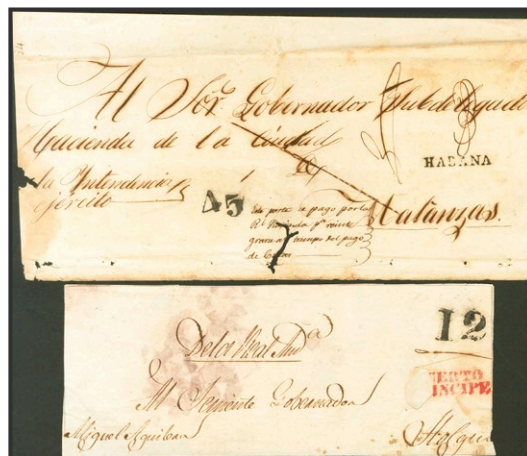 Al Sor. Gobernador Subdelegado
Hacienda de la Ciudad
de
HABANA
la Intendencia
ejército
45
Este porte se pago por la
Rl Hacienda pa
tiempo del pago
de
Matanzas.
12
De la Real Auda
PUERTO
PRINCIPE
Al Teniente Gobernador
Miguel Aguilera
Holguin